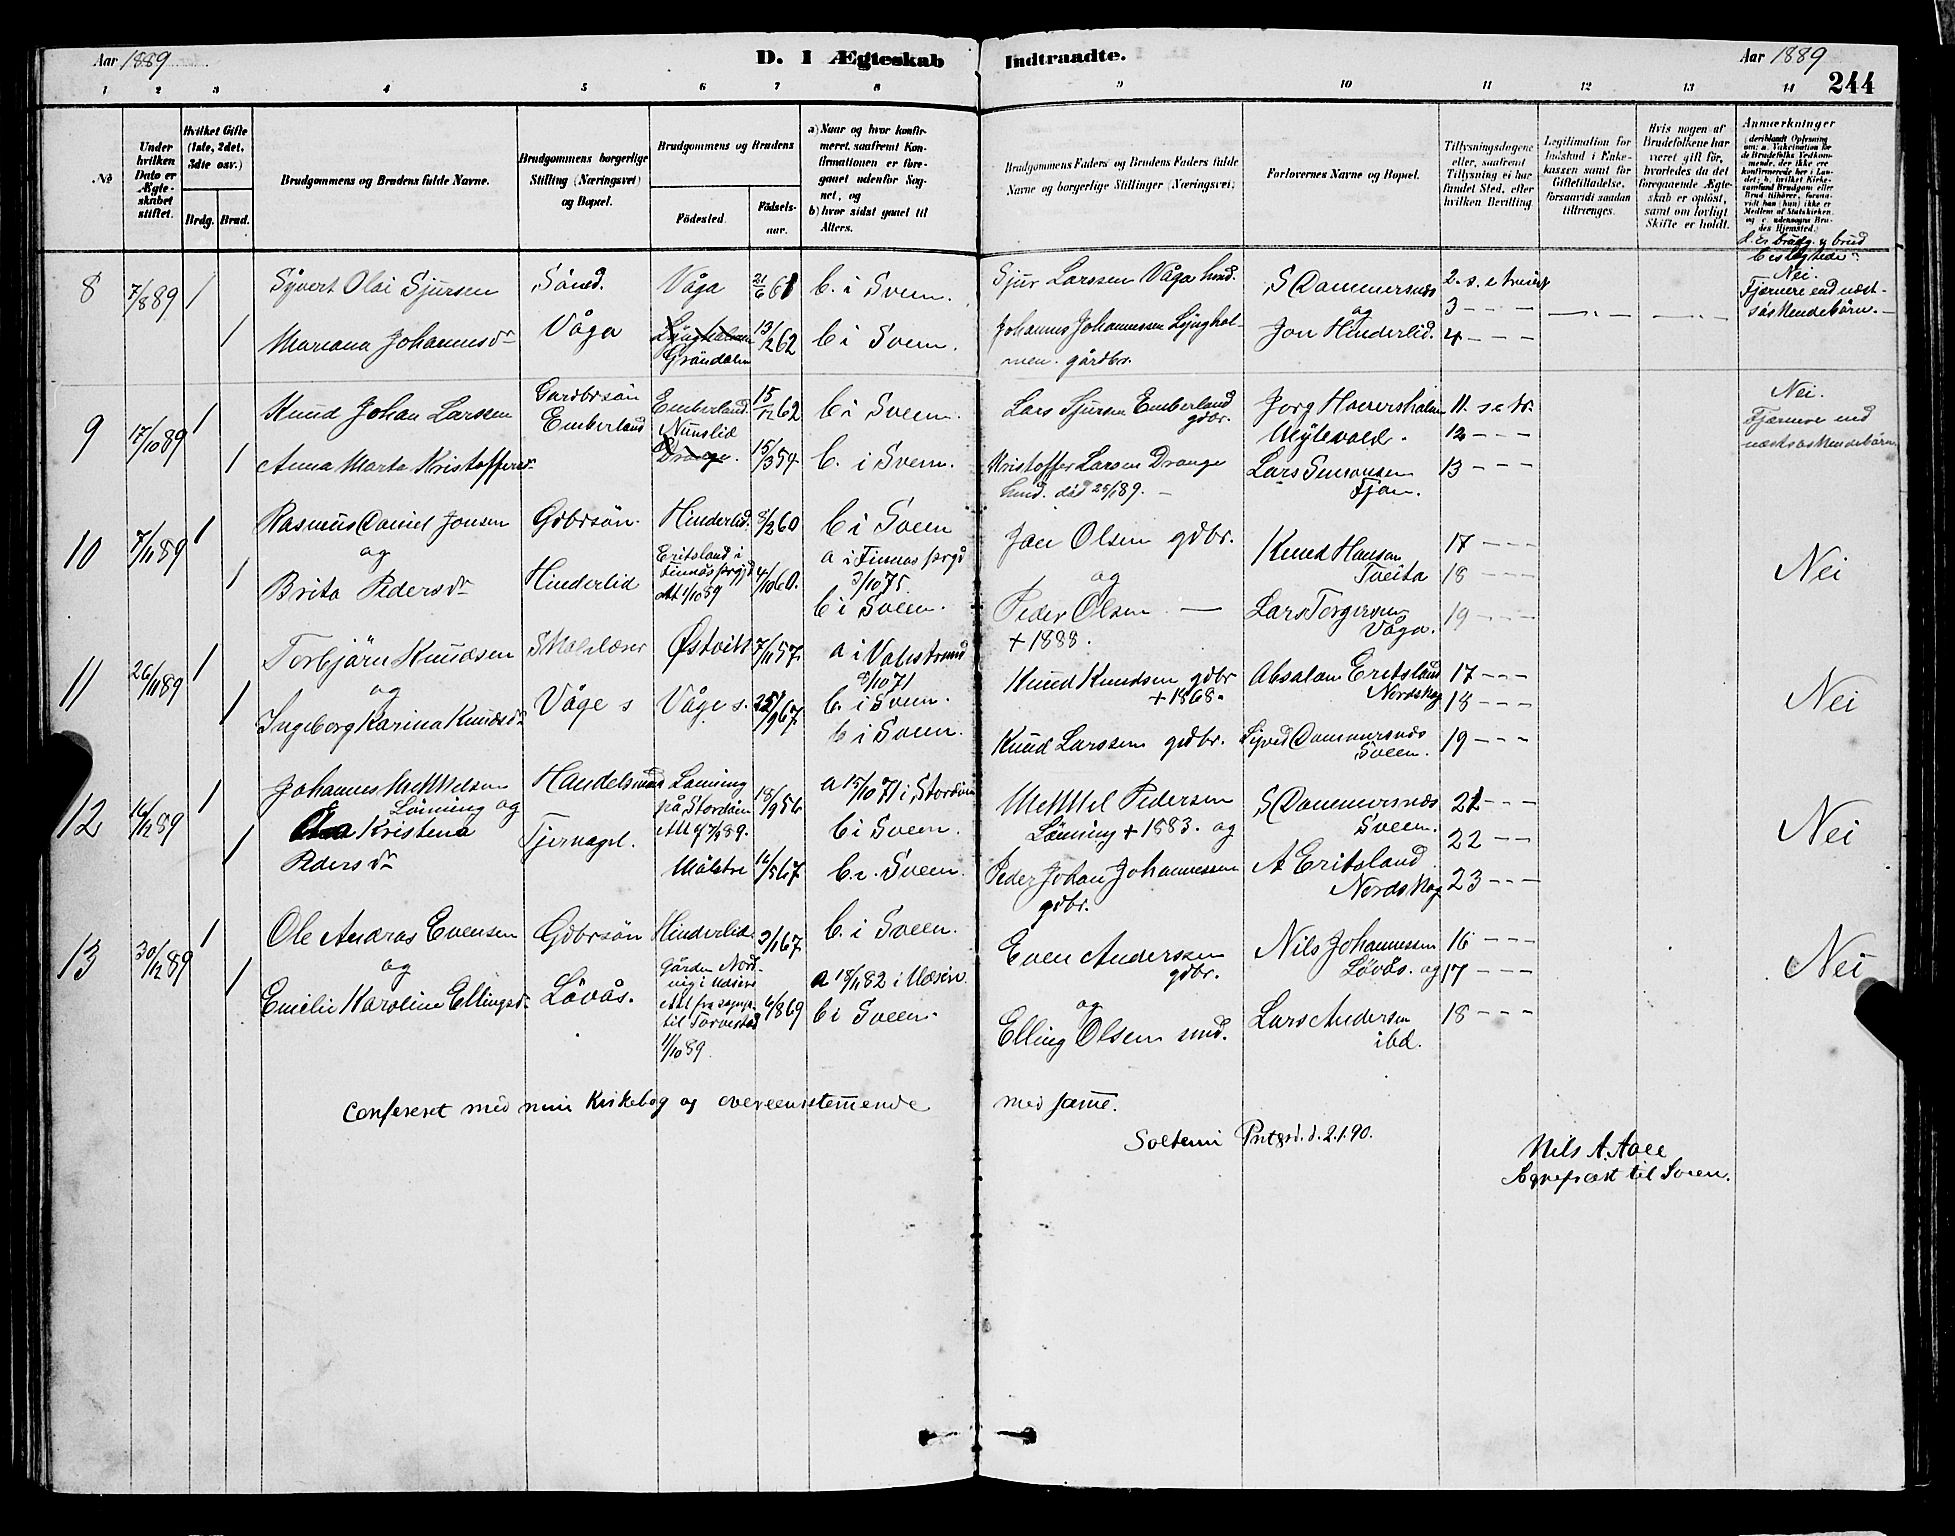 Aar 1889
D. I Ægteskab Indtraadte.
Aar 1889
244
1 2 3 4 5 6 7 8 9 10 11 12 13 14
No
Under hvilken Dato er Ægteskabet stiftet.
Hvilket Gifte (1ste, 2det, 3die osv.)
Brdg. Brud.
Brudgommens og Brudens fulde Navne.
Brudgommens borgerlige Stilling (Næringsvei) og Bopæl.
Brudgommens og Brudens
Fødested.
Fødselsaar.
a) Naar og hvor konfirmeret, saafremt Konfirmationen er foregaaet udenfor Sognet, og
b) hvor sidst gaaet til Alters.
Brudgommens Faders og Brudens Faders fulde Navne og borgerlige Stillinger (Næringsvei)
Forlovernes Navne og Bopæl.
Tillysningsdagene eller, saafremt Tillysning ei har fundet Sted, efter hvilken Bevilling
Legitimation for Indskud i Enkekassen samt for Giftetilladelse, forsaavidt saadan tiltrænges.
Hvis nogen af Brudefolkene har været gift før, hvorledes da det foregaaende Ægteskab er opløst, samt om lovligt Skifte er holdt.
Anmærkninger
d. Er brudg. og brud beslægtede
8 7/8 89 1 Syvert Olai Sjursen Sömd. Våga 21/6 61 b. i Sveen. Sjur Larssen Våga hmd. S Dommersnes og 2. s. e trinit Nei.
1 Mariana Johannesdr Våga Gröndalen 13/2 62 b i Sveen. Johannes Johannessen Lyngholmen. gårdbr. Jon Hinderlid. 3 - - - 4 - - - Fjærnere end næstsöskendebörn.
9 17/10 89 1 Knud Johan Larssen Gardbrsön Emberland Emberland 15/12 62 b i Sveen. Lars Sjursen Emberland gdbr. 11. s e tr. 12 - - - Nei. Fjærnere end næstsöskendebörn
1 Anna Marta Kristoffersdr Nunslid Drange. 15/3 54 b. i Sveen. Kristoffer Larsen Drange hmd. död Lars Simonsen Fjon. 13 - - -
10 7/11 89 1 Rasmus Daniel Jonsen og Gdbrsön. Hinderlid. 8/2 60 b i Sveen Jon Olsen gdbr. og Knud Hansen Tveita 17 - - - 18 - - - Nei
1 Brita Pedersdr Hinderlid Eritsland i Finnås prgjd Att 1/10 89 4/10 60. a i Finnås prgjd 3/10 75. b i Sveen. Peder Olsen — + 1888. Lars Torgersen Våga. 19 - - -
11 26/11 89 1 Torbjörn Knudsen og Skolelærer Østvik 7/11 57. a i Valestrand 8/10 71 b. i Sveen. Knud Knudsen gdbr + 1868. Absalon Eritsland Nordskog 17 - - - 18 - - - Nei
1 Ingeborg Karina Knudsdr Våge s Våge s. 25/9 67. b i Sveen. Knud Larssen gdbr. Syvert Dommersnes Sveen. 19 - - -
12 14/12 89 1 Johannes Mikkelsen Lönning og Handelsmand Lönning på Stordöen Att 4 7/12 89. 18/9 56 a 15/10 71 i Stordöen b i Sveen. Mikkel Pedersen Lönning + 1883. og S Dommersnes Sveen. 21 - - - 22 - - Nei
1 Kristena Pedersdr Tjernagel. Målstre 16/5 67 b. i. Sveen. Peder Johan Johannessen gdbr. A Eritsland Nordskog 23 - - -
13 30/12 89 1 Ole Andras Evensen og Gdbrsön Hinderlid 3/1 67. b. i Sveen. Even Anderssen gdbr. og Nils Johannessen Lövås. og 16 - - - 17 - - - Nei
1 Emelie Karoline Ellingsdr Lövås. Gården til Torvestad 1/10 89. 6/8 69 a 18/11 82 i b i Sveen. Elling Olsen smd. Lars Andersen ibd. 18 - - -
Confereret med min Kirkebog og overeenstemmende med samme.
Sveen Prstgrd. d. 2.1.90.
Nils A. Aale
Sognepræst til Sveen.